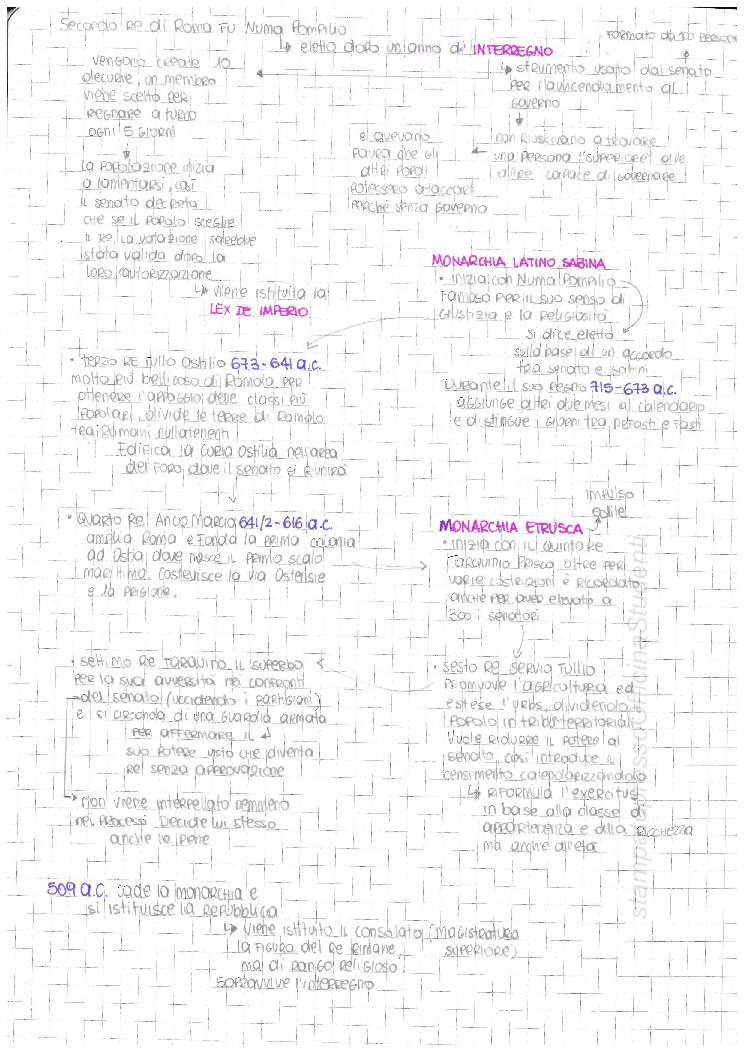 Secondo Re di Roma fu Numa Pompilio
↳ eletto dopo un anno di INTERREGNO
Formato da 10 persone
↳ strumento usato dal senato
per l'avvicendamento al
governo
non riuscivano a trovare
una persona "superiore" alle
altre capace di governare
e avevano
paura che gli
altri popoli
potessero attaccare
perché senza governo
vengono create 10
decurie, un membro
viene scelto per
regnare a turno
ogni 5 giorni
la popolazione inizia
a lamentarsi, così
il senato decreta
che se il popolo sceglie
il re, la votazione sarebbe
stata valida dopo la
loro autorizzazione
↳ viene istituita la
LEX DE IMPERIO
MONARCHIA LATINO SABINA
• inizia con Numa Pompilio
famoso per il suo senso di
giustizia e la religiosità
si dice eletto
sulla base di un accordo
tra senato e sabini
Durante il suo regno 715-673 a.C.
aggiunge altri due mesi al calendario
e distingue i giorni tra nefasti e fasti
• terzo Re Tullo Ostilio 673-641 a.C.
molto più bellicoso di Romolo per
ottenere l'appoggio delle classi più
popolari, divide le terre di Romolo
tra i Romani nullatenenti
Edifica la curia Ostilia nell'area
del Foro, dove il senato si riunirà
• Quarto Re Anco Marcio 641/2-616 a.C.
amplia Roma e fonda la prima colonia
ad Ostia dove nasce il primo scalo
marittimo. Costruisce la via Ostensie
e la prigione.
impulso
edile
MONARCHIA ETRUSCA
• inizia con il quinto re
Tarquinio Prisco oltre per
varie costruzioni è ricordato
anche per aver elevato a
300 i senatori
• sesto Re Servio Tullio
promuove l'agricoltura ed
estese l'urbs dividendo il
popolo in tribù territoriali
Vuole ridurre il potere al
senato, così introduce il
censimento calendarizzandolo
↳ Riformula l'exercitus
in base alla classe di
appartenenza e alla ricchezza
ma anche all'età
• settimo Re Tarquinio il superbo
per la sua avversità nei confronti
del senato (uccidendo i partigiani)
e si circonda di una guardia armata
per affermare il
suo potere visto che diventa
re senza approvazione
non viene interpellato nemmeno
nei processi Decide lui stesso
anche le pene
509 a.C. cade la monarchia e
si istituisce la Repubblica
↳ viene istituito il consolato (magistratura
superiore)
la figura del re rimane,
ma di rango religioso.
Sopravvive l'interregno
stampato presso OfficinaStudenti